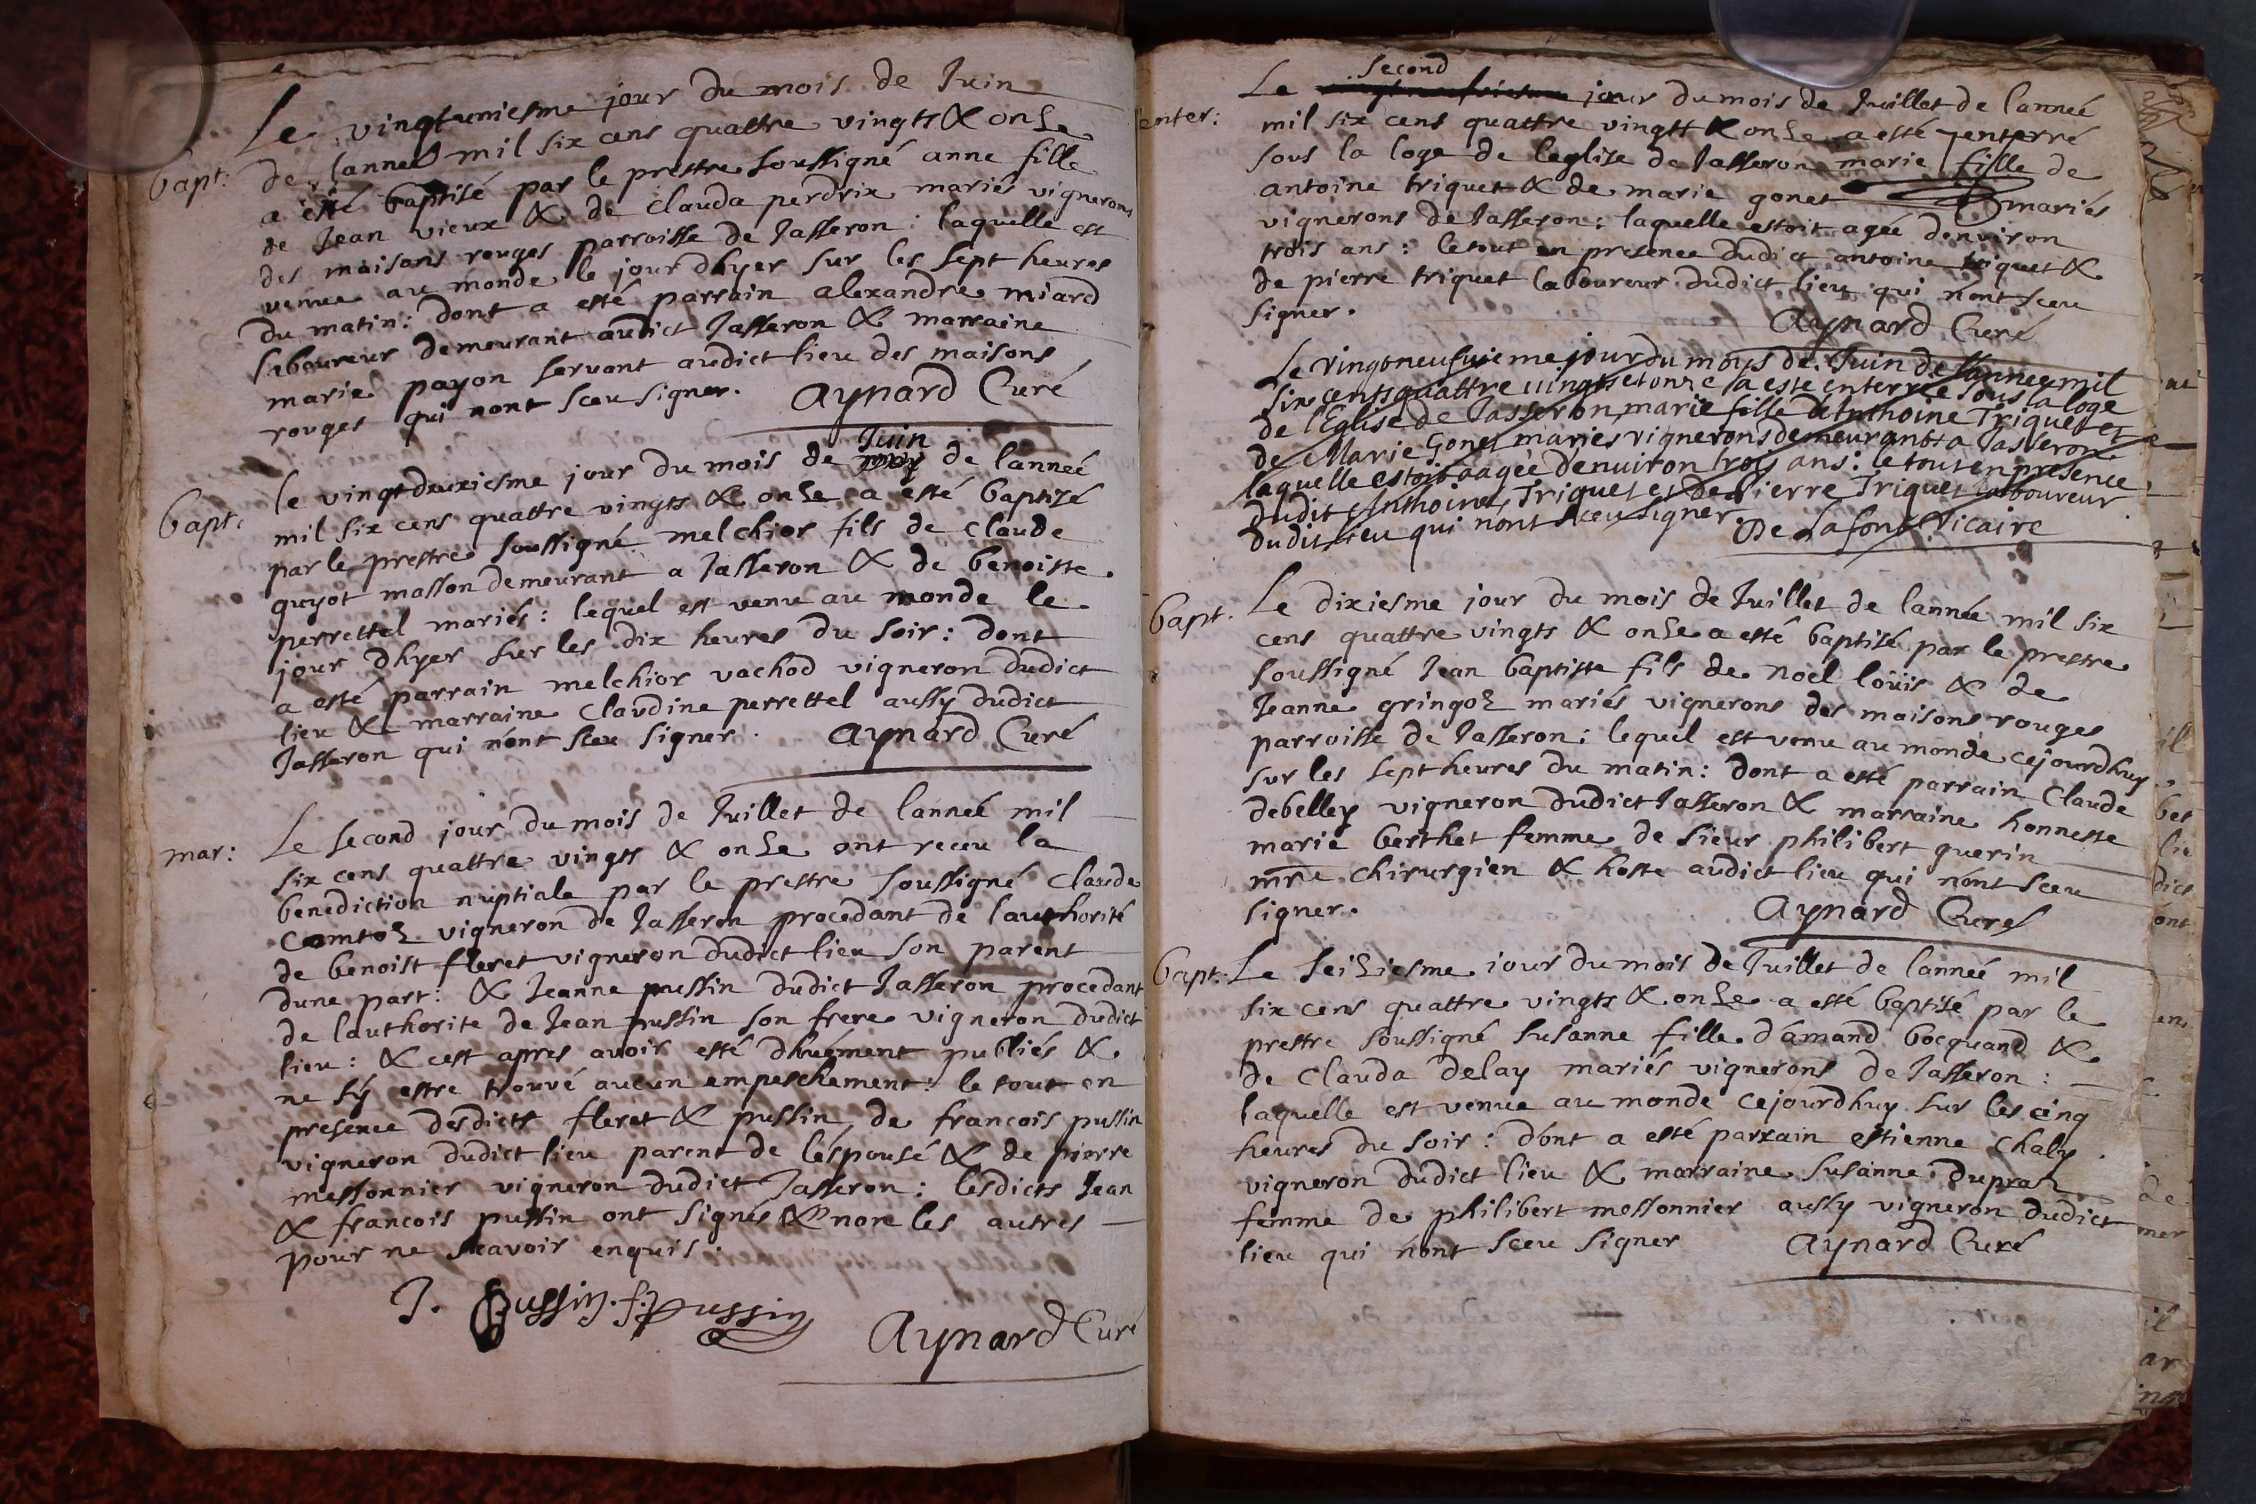 Le vingtuniesme jour du mois de Juin
de lanneé mil six cens quattre vingts & onze
bapt:
a esté baptisé par le prestre soussigné anne fille
de Jean vieux & de Clauda perdrix mariés vignerons
des maisons rouges parroisse de Jasseron : laquelle est
venue au monde le jour dhyer sur les sept heures
du matin : dont a esté parrain alexandre miard
laboureur demeurant audict Jasseron & marraine
marie payon servant audict lieu des maisons
rouges qui nont sceu signer. Aynard Curé
Juin
le vingtdeuxiesme jour du mois de may de lanneé
bapt:
mil six cens quattre vingts & onze a esté baptizé
par le prestre soussigné melchior fils de Claude
guyot masson demeurant a Jasseron & de benoiste
perrettel mariés : lequel est venu au monde le
jour dhyer sur les dix heures du soir : dont
a esté parrain melchior vachod vigneron dudict
lieu & marraine Claudine perrettel aussy dudict
Jasseron qui nont sceu signer. Aynard Curé
Le second jour du mois de Juillet de lanneé mil
mar:
six cens quattre vingts & onze ont receu la
benediction nuptiale par le prestre soussigné Claude
Comtoz vigneron de Jasseron procedant de lauthorité
de benoist fleret vigneron dudict lieu son parent
dune part : & Jeanne pussin dudict Jasseron procedant
de lauthorite de Jean pussin son frere vigneron dudict
lieu : & cest apres avoir esté dhuément publiés &
ne sÿ estre trouvé aucun empeschement : le tout en
presence desdicts fleret & pussin de francois pussin
vigneron dudict lieu parent de léspousé & de pierre
messonnier vigneron dudict Jasseron : lesdicts Jean
& francois pussin ont signés & non les autres
pour ne scavoir enquis.
J. Pussin. f. pussin
Aynard Curé
second
Le jour du mois de Juillet de lanneé
enter:
mil six cens quattre vingts & onze a esté enterré
sous la loge de leglise de Jasseron marie fille de
antoine triquet & de marie gonet mariés
vignerons de Jasseron : laquelle estoit ageé denviron
trois ans : le tout en presence dudict antoine triquet &
de pierre triquet laboureur dudict lieu qui nont sceu
signer. Aynard Curé
Le vingtneufuieme jour du moys de Juin de lannee mil
six cents quattre vingts et onze a esté enterrée sous la loge
de l'Eglise de Jasseron marie fille d'Anthoine Triquet et
de Marie Gonet mariés vignerons demeurants a Jasseron
laquelle estoit aagée d'enuiron trois ans : le tout en presence
dudit Anthoine Triquet et de Pierre Triquet laboureur
dudit lieu qui nont sceu signer. De Lafont Vicaire
bapt.
Le dixiesme jour du mois de Juillet de lannée mil six
cens quattre vingts & onze a esté baptisé par le prestre
soussigné Jean baptiste fils de noël loüis & de
Jeanne gringoz mariés vignerons des maisons rouges
parroisse de Jasseron : lequel est venu au monde cejourdhuy
sur les sept heures du matin : dont a esté parrain Claude
debelley vigneron dudict Jasseron & marraine honneste
marie berthet femme de sieur philibert guerin
mre chirurgien & hoste audict lieu qui nont sceu
signer. Aynard Curé
bapt:
Le seiziesme jour du mois de Juillet de lanneé mil
six cens quattre vingts & onze a esté baptisé par le
prestre soussigné susanne fille d'amand bocquand &
de Clauda delay mariés vignerons de Jasseron :
laquelle est venue au monde cejourdhuy sur les cinq
heures du soir : dont a esté parrain estienne Chaly
vigneron dudict lieu & marraine susanne dupraz
femme de philibert messonnier aussy vigneron dudict
lieu qui nont sceu signer Aynard Curé